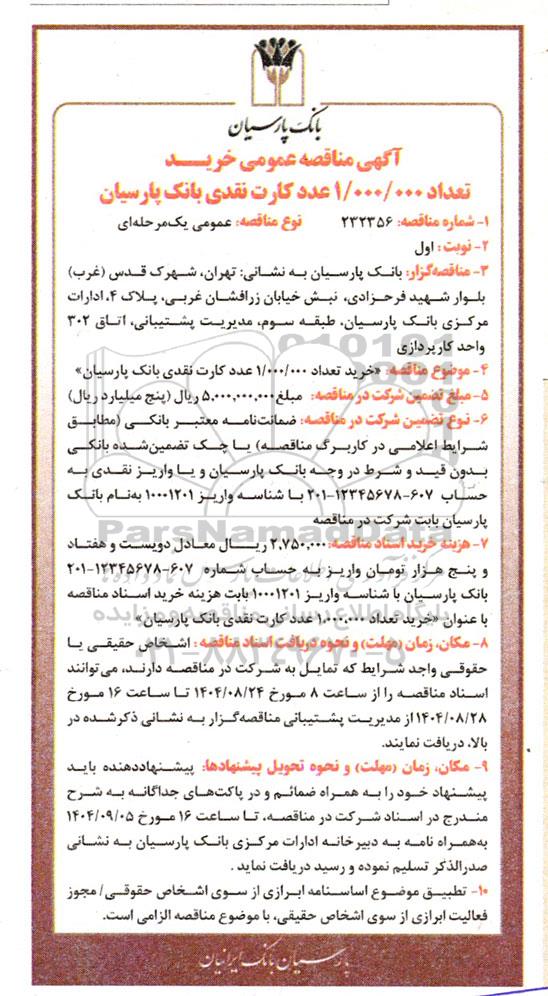 بانک پارسیان
آگهی مناقصه عمومی خریــــد
تعداد ۱/۰۰۰/۰۰۰ عدد کارت نقدی بانک پارسیان
۱- شماره مناقصه: ۲۳۲۳۵۶ نوع مناقصه: عمومی یک‌مرحله‌ای
۲- نوبت: اول
۳- مناقصه‌گزار: بانک پارسیان به نشانی: تهران، شهرک قدس (غرب)
بلوار شهید فرحزادی، نبش خیابان زرافشان غربی، پلاک ۴، ادارات
مرکزی بانک پارسیان، طبقه سوم، مدیریت پشتیبانی، اتاق ۳۰۲
واحد کارپردازی
۴- موضوع مناقصه: «خرید تعداد ۱/۰۰۰/۰۰۰ عدد کارت نقدی بانک پارسیان»
۵- مبلغ تضمین شرکت در مناقصه: مبلغ ۵,۰۰۰,۰۰۰,۰۰۰ ریال (پنج میلیارد ریال)
۶- نوع تضمین شرکت در مناقصه: ضمانت‌نامه معتبر بانکی (مطابق
شرایط اعلامی در کاربرگ مناقصه) یا چک تضمین‌شده بانکی
بدون قید و شرط در وجه بانک پارسیان و یا واریز نقدی به
حساب ۶۰۷-۱۲۳۴۵۶۷۸-۲۰۱ با شناسه واریز ۱۰۰۰۱۲۰۱ به‌نام بانک
پارسیان بابت شرکت در مناقصه
۷- هزینه خرید اسناد مناقصه: ۲,۷۵۰,۰۰۰ ریــال معادل دویست و هفتاد
و پنج هزار تومان واریز به حساب شماره ۶۰۷-۱۲۳۴۵۶۷۸-۲۰۱
بانک پارسیان با شناسه واریز ۱۰۰۰۱۲۰۱ بابت هزینه خرید اسناد مناقصه
با عنوان «خرید تعداد ۱,۰۰۰,۰۰۰ عدد کارت نقدی بانک پارسیان»
۸- مکان، زمان (مهلت) و نحوه دریافت اسناد مناقصه: اشخاص حقیقی یا
حقوقی واجد شرایط که تمایل به شرکت در مناقصه دارند، می‌توانند
اسناد مناقصه را از ساعت ۸ مورخ ۱۴۰۴/۰۸/۲۴ تا ساعت ۱۶ مورخ
۱۴۰۴/۰۸/۲۸ از مدیریت پشتیبانی مناقصه‌گزار به نشانی ذکرشده در
بالا، دریافت نمایند.
۹- مکان، زمان (مهلت) و نحوه تحویل پیشنهادها: پیشنهاددهنده باید
پیشنهاد خود را به همراه ضمائم و در پاکت‌های جداگانه به شرح
مندرج در اسناد شرکت در مناقصه، تا ساعت ۱۶ مورخ ۱۴۰۴/۰۹/۰۵
به‌همراه نامه به دبیرخانه ادارات مرکزی بانک پارسیان به نشانی
صدرالذکر تسلیم نموده و رسید دریافت نماید.
۱۰- تطبیق موضوع اساسنامه ابرازی از سوی اشخاص حقوقی/ مجوز
فعالیت ابرازی از سوی اشخاص حقیقی، با موضوع مناقصه الزامی است.
پارسیان بانک ایرانیان
ParsNamadData